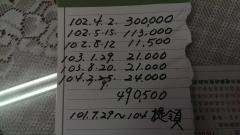 102.4.2. 300,000
102.5.15. 113,000
102.8.12 11,500
103.1.29. 21,000
103.8.20. 21,000
104. 24,000
490,500
101.7.29~104 提領